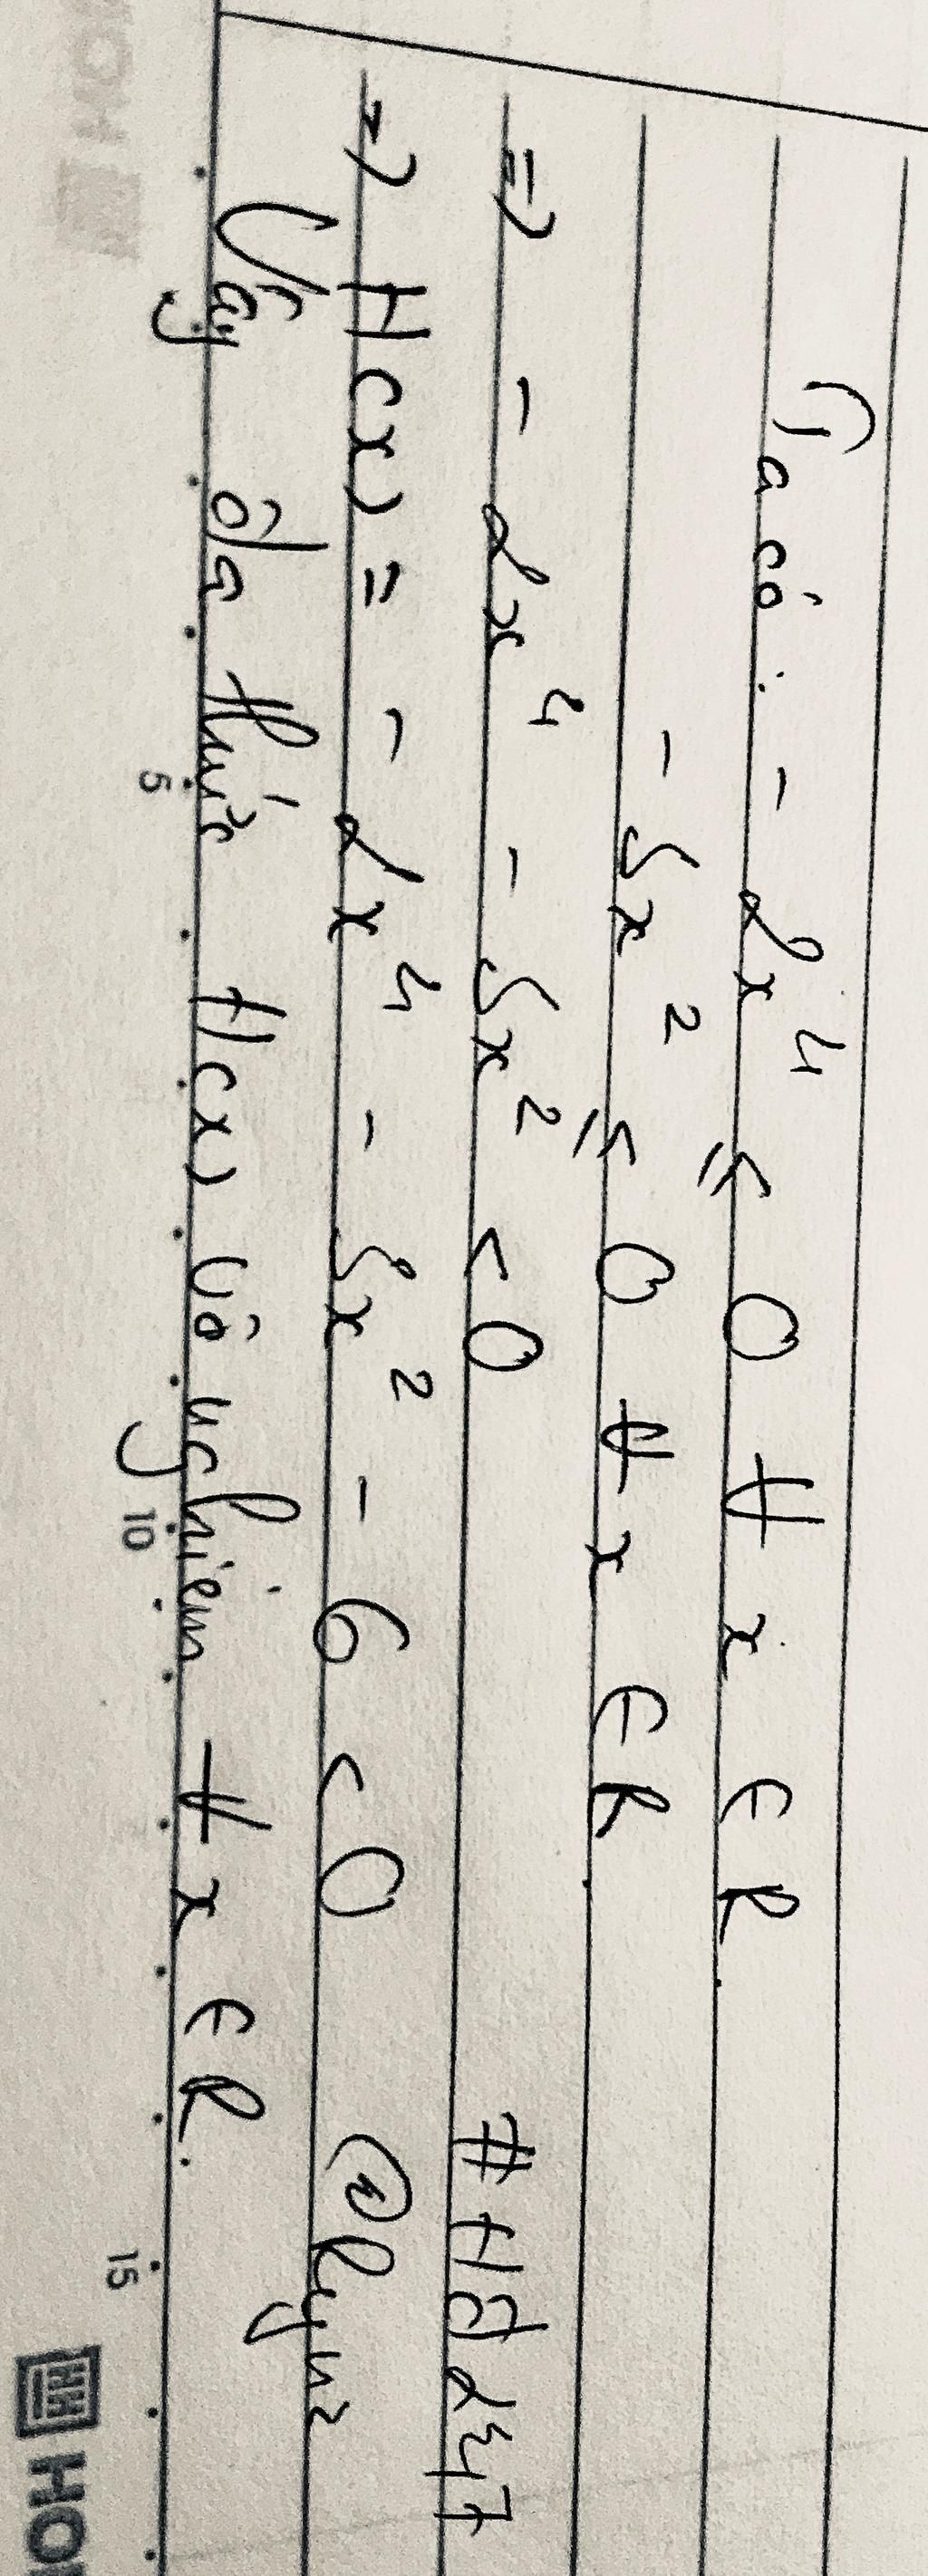 Ta có: - 2x⁴ ≤ 0 ∀ x ∈ R.
- 5x² ≤ 0 ∀ x ∈ R.
=> - 2x⁴ - 5x² < 0
#Hđ247
=> H(x) = - 2x⁴ - 5x² - 6 < 0
Vậy đa thức H(x) vô nghiệm ∀ x ∈ R.
5
10
15
HOH